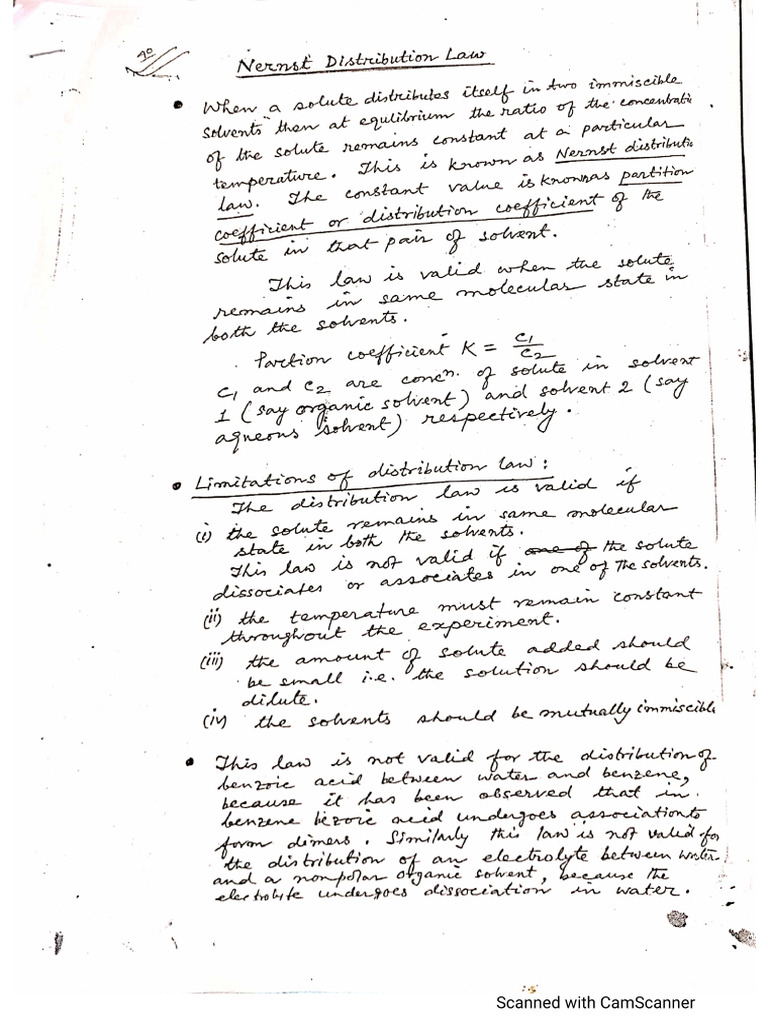 Nernst Distribution Law
• When a solute distributes itself in two immiscible
solvents then at equlibrium the ratio of the concentratio
of the solute remains constant at a particular
temperature. This is known as Nernst distributio
law. The constant value is known as partition
coefficient or distribution coefficient of the
solute in that pair of solvent.
This law is valid when the solute
remains in same molecular state in
both the solvents.
Partion coefficient K = C1/C2
C1 and C2 are concn. of solute in solvent
1 (say organic solvent) and solvent 2 (say
aqueous solvent) respectively.
• Limitations of distribution law:
The distribution law is valid if
(i) the solute remains in same molecular
state in both the solvents.
This law is not valid if one of the solute
dissociates or associates in one of the solvents.
(ii) the temperature must remain constant
throughout the experiment.
(iii) the amount of solute added should
be small i.e. the solution should be
dilute.
(iv) the solvents should be mutually immiscible
• This law is not valid for the distribution of
benzoic acid between water and benzene,
because it has been observed that in
benzene bezoic acid undergoes association to
form dimers. Similarly this law is not valid for
the distribution of an electrolyte between water
and a nonpolar organic solvent, because the
electrolyte undergoes dissociation in water.
Scanned with CamScanner